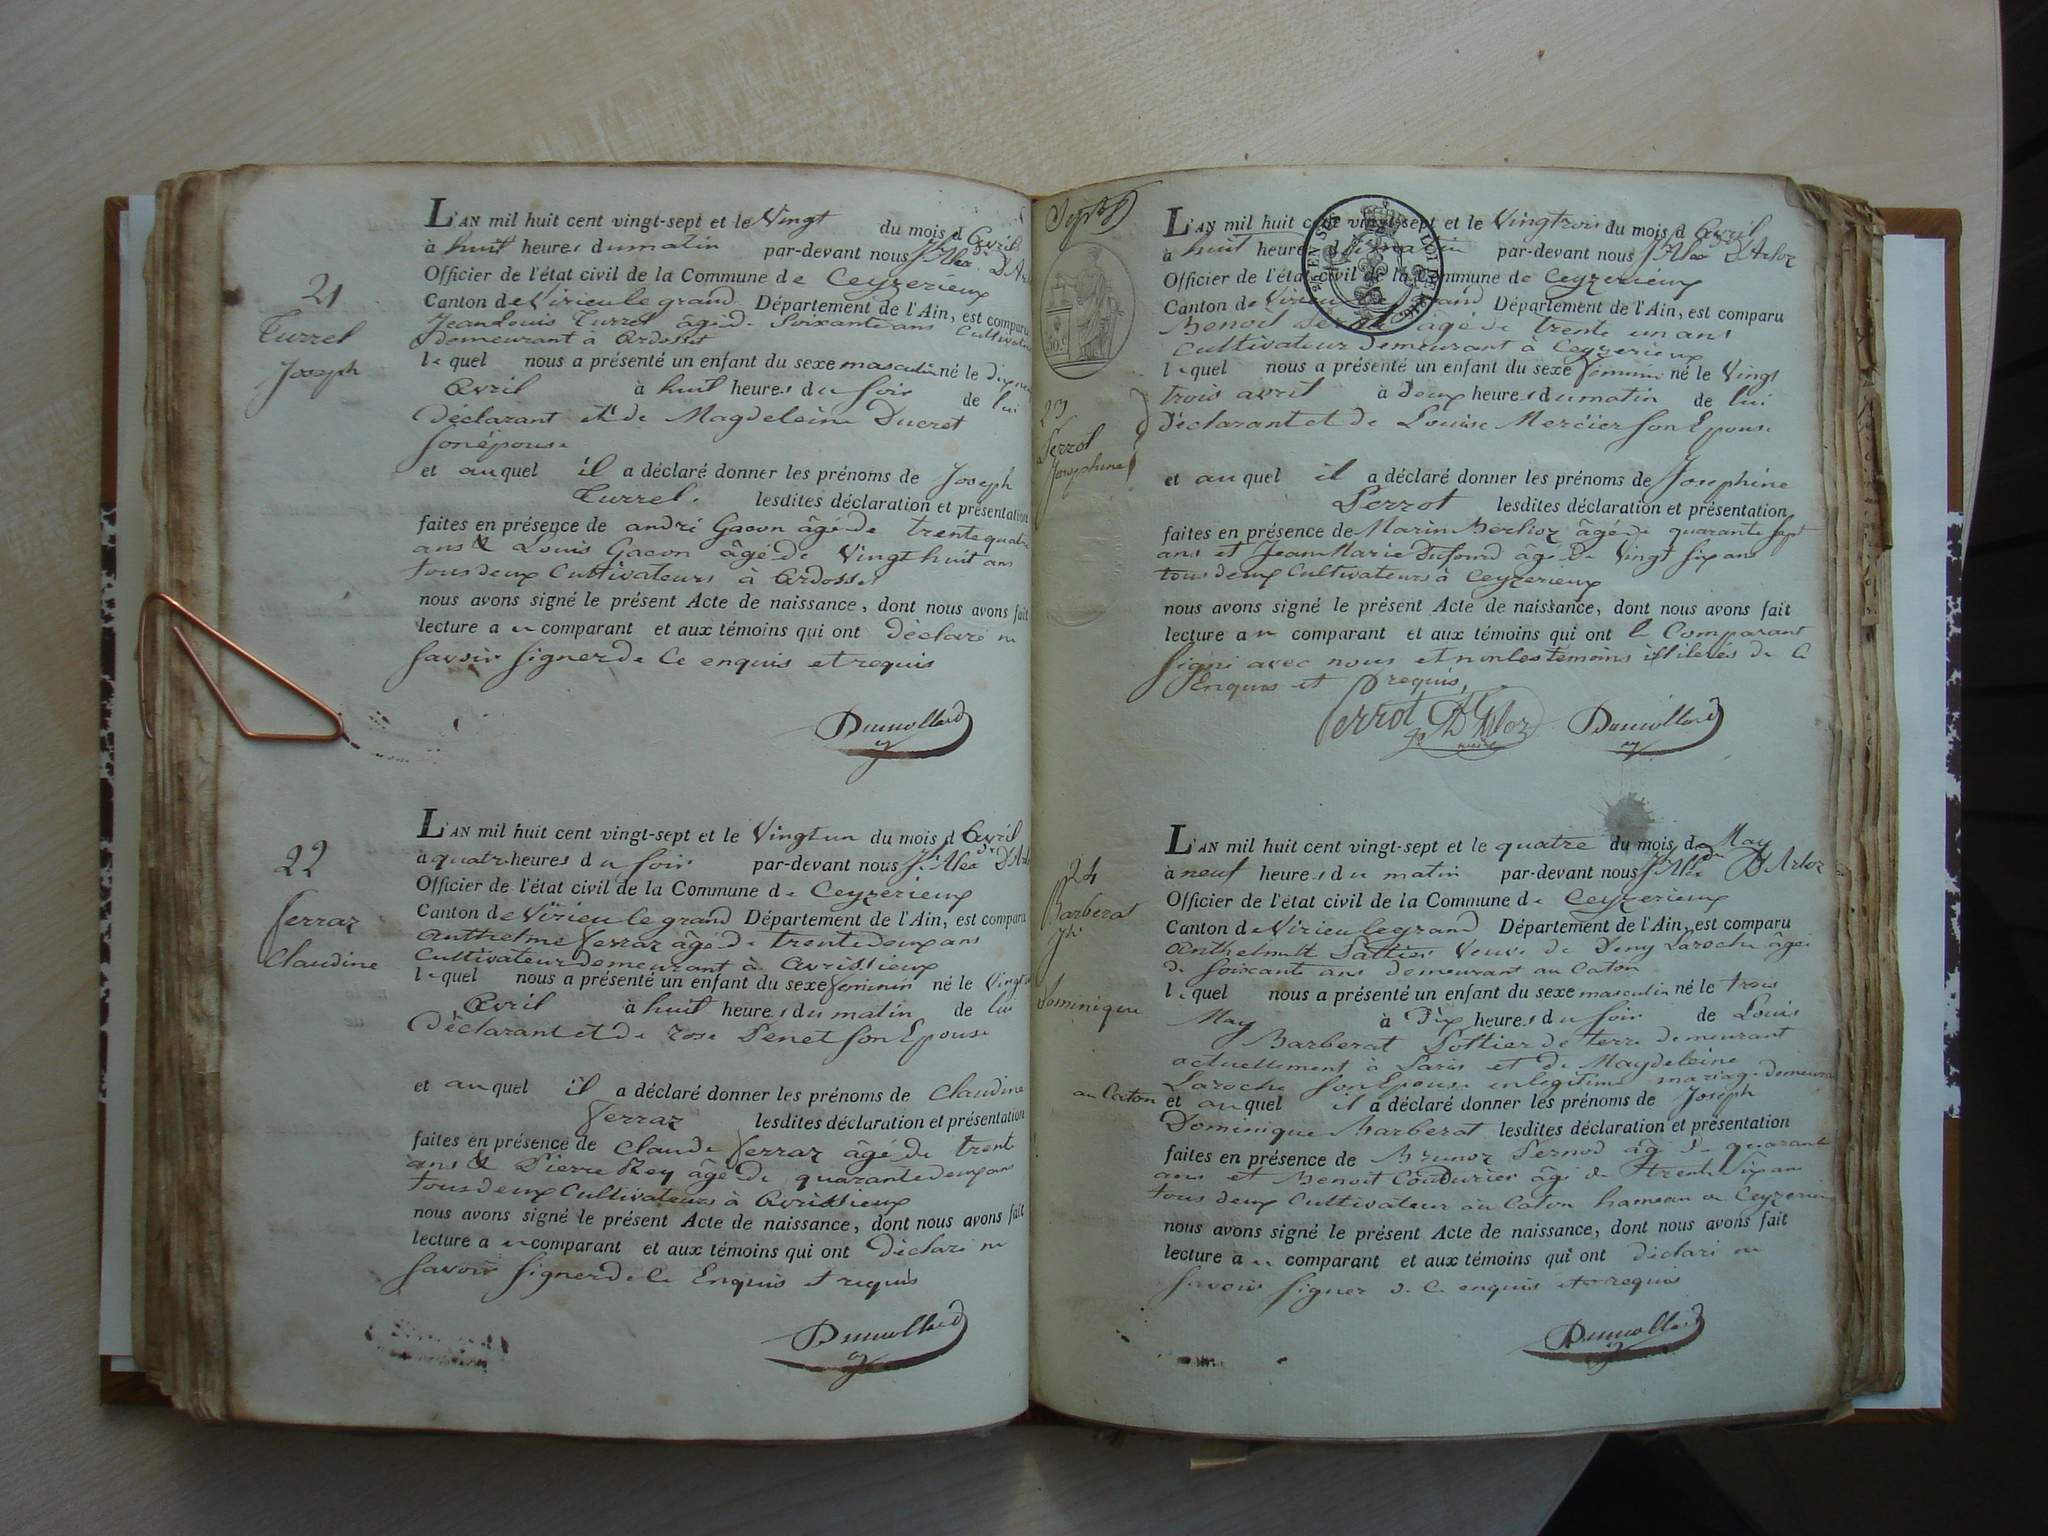 21
Turrel
Joseph
L'AN mil huit cent vingt-sept et le Vingt du mois d'Avril
à huit heures du matin par-devant nous Jh Alex.dre D'Ar
Officier de l'état civil de la Commune de Ceyzerieux
Canton de Virieu le grand Département de l'Ain, est comparu
Jean Louis Turrel âgé de Soixante ans Cultivateur
demeurant à Ardosset
lequel nous a présenté un enfant du sexe masculin né le dixneuf
Avril à huit heures du soir de lui
Déclarant et de Magdeleine Ducret
son épouse
et auquel il a déclaré donner les prénoms de Joseph
Turrel. lesdites déclaration et présentation
faites en présence de andré Gacon âgé de trente quatre
ans & Louis Gacon âgé de Vingt huit ans
tous deux Cultivateurs à Ardosset
nous avons signé le présent Acte de naissance, dont nous avons fait
lecture au comparant et aux témoins qui ont Déclaré ne
Savoir Signer de Ce enquis et requis
Dumollard
22
Ferraz
Claudine
L'AN mil huit cent vingt-sept et le Vingt un du mois d'Avril
à quatre heures du soir par-devant nous Jh Alex.dre D'Arl
Officier de l'état civil de la Commune de Ceyzerieux
Canton de Virieu le grand Département de l'Ain, est comparu
Anthelme Ferraz âgé de trente deux ans
Cultivateur demeurant à Avrissieux
lequel nous a présenté un enfant du sexe feminin né le Vingt un
Avril à huit heures du matin de lui
Déclarant et de rose Penet son Epouse
et auquel il a déclaré donner les prénoms de Claudine
Ferraz lesdites déclaration et présentation
faites en présence de Claude Ferraz âgé de trente
ans & Pierre Rey âgé de quarante deux ans
tous deux Cultivateurs à Avrissieux
nous avons signé le présent Acte de naissance, dont nous avons fait
lecture au comparant et aux témoins qui ont Déclaré ne
Savoir Signer de Ce Enquis et requis
Dumollard
30.c
23
Perrot
Josephine
L'AN mil huit cent vingt-sept et le Vingt trois du mois d'Avril
à huit heures du matin par-devant nous Jh Alex.dre D'Arloz
Officier de l'état civil de la Commune de Ceyzerieux
Canton de Virieu le grand Département de l'Ain, est comparu
Benoit Perrot âgé de trente un ans
Cultivateur demeurant à Ceyzerieux
lequel nous a présenté un enfant du sexe féminin né le Vingt
trois avril à Deux heures du matin de lui
Déclarant et de Louise Mercier son Epouse
et auquel il a déclaré donner les prénoms de Josephine
Perrot lesdites déclaration et présentation
faites en présence de Marin Berlioz âgé de quarante sept
ans et Jean Marie Dufourd âgé de Vingt Six ans
tous deux Cultivateurs à Ceyzerieux
nous avons signé le présent Acte de naissance, dont nous avons fait
lecture au comparant et aux témoins qui ont le Comparant
Signé avec nous et non les temoins illiterés de Ce
Enquis et requis
Perrot D'Arloz maire Dumollard
24
Barberat
Jh
Dominique
L'AN mil huit cent vingt-sept et le quatre du mois de May
à neuf heures du matin par-devant nous Jh Alex.dre D'Arloz
Officier de l'état civil de la Commune de Ceyzerieux
Canton de Virieu le grand Département de l'Ain, est comparu
Veuve de Deny Laroche âgée
de soixante ans demeurant au Caton
lequel nous a présenté un enfant du sexe masculin né le trois
May à Dix heures du soir de Louis
Barberat Pottier de terre demeurant
actuellement à Paris et de Magdeleine
Laroche son Epouse en legitime mariage demeurant
au Caton et auquel il a déclaré donner les prénoms de Joseph
Dominique Barberat lesdites déclaration et présentation
faites en présence de Brunoz Pernod âgé de quarante
ans et Benoit Coudurier âgé de trente Six ans
tous deux Cultivateur au Caton hameau de Ceyzerieux
nous avons signé le présent Acte de naissance, dont nous avons fait
lecture au comparant et aux témoins qui ont déclaré ne
Savoir Signer de Ce enquis et requis
Dumollard